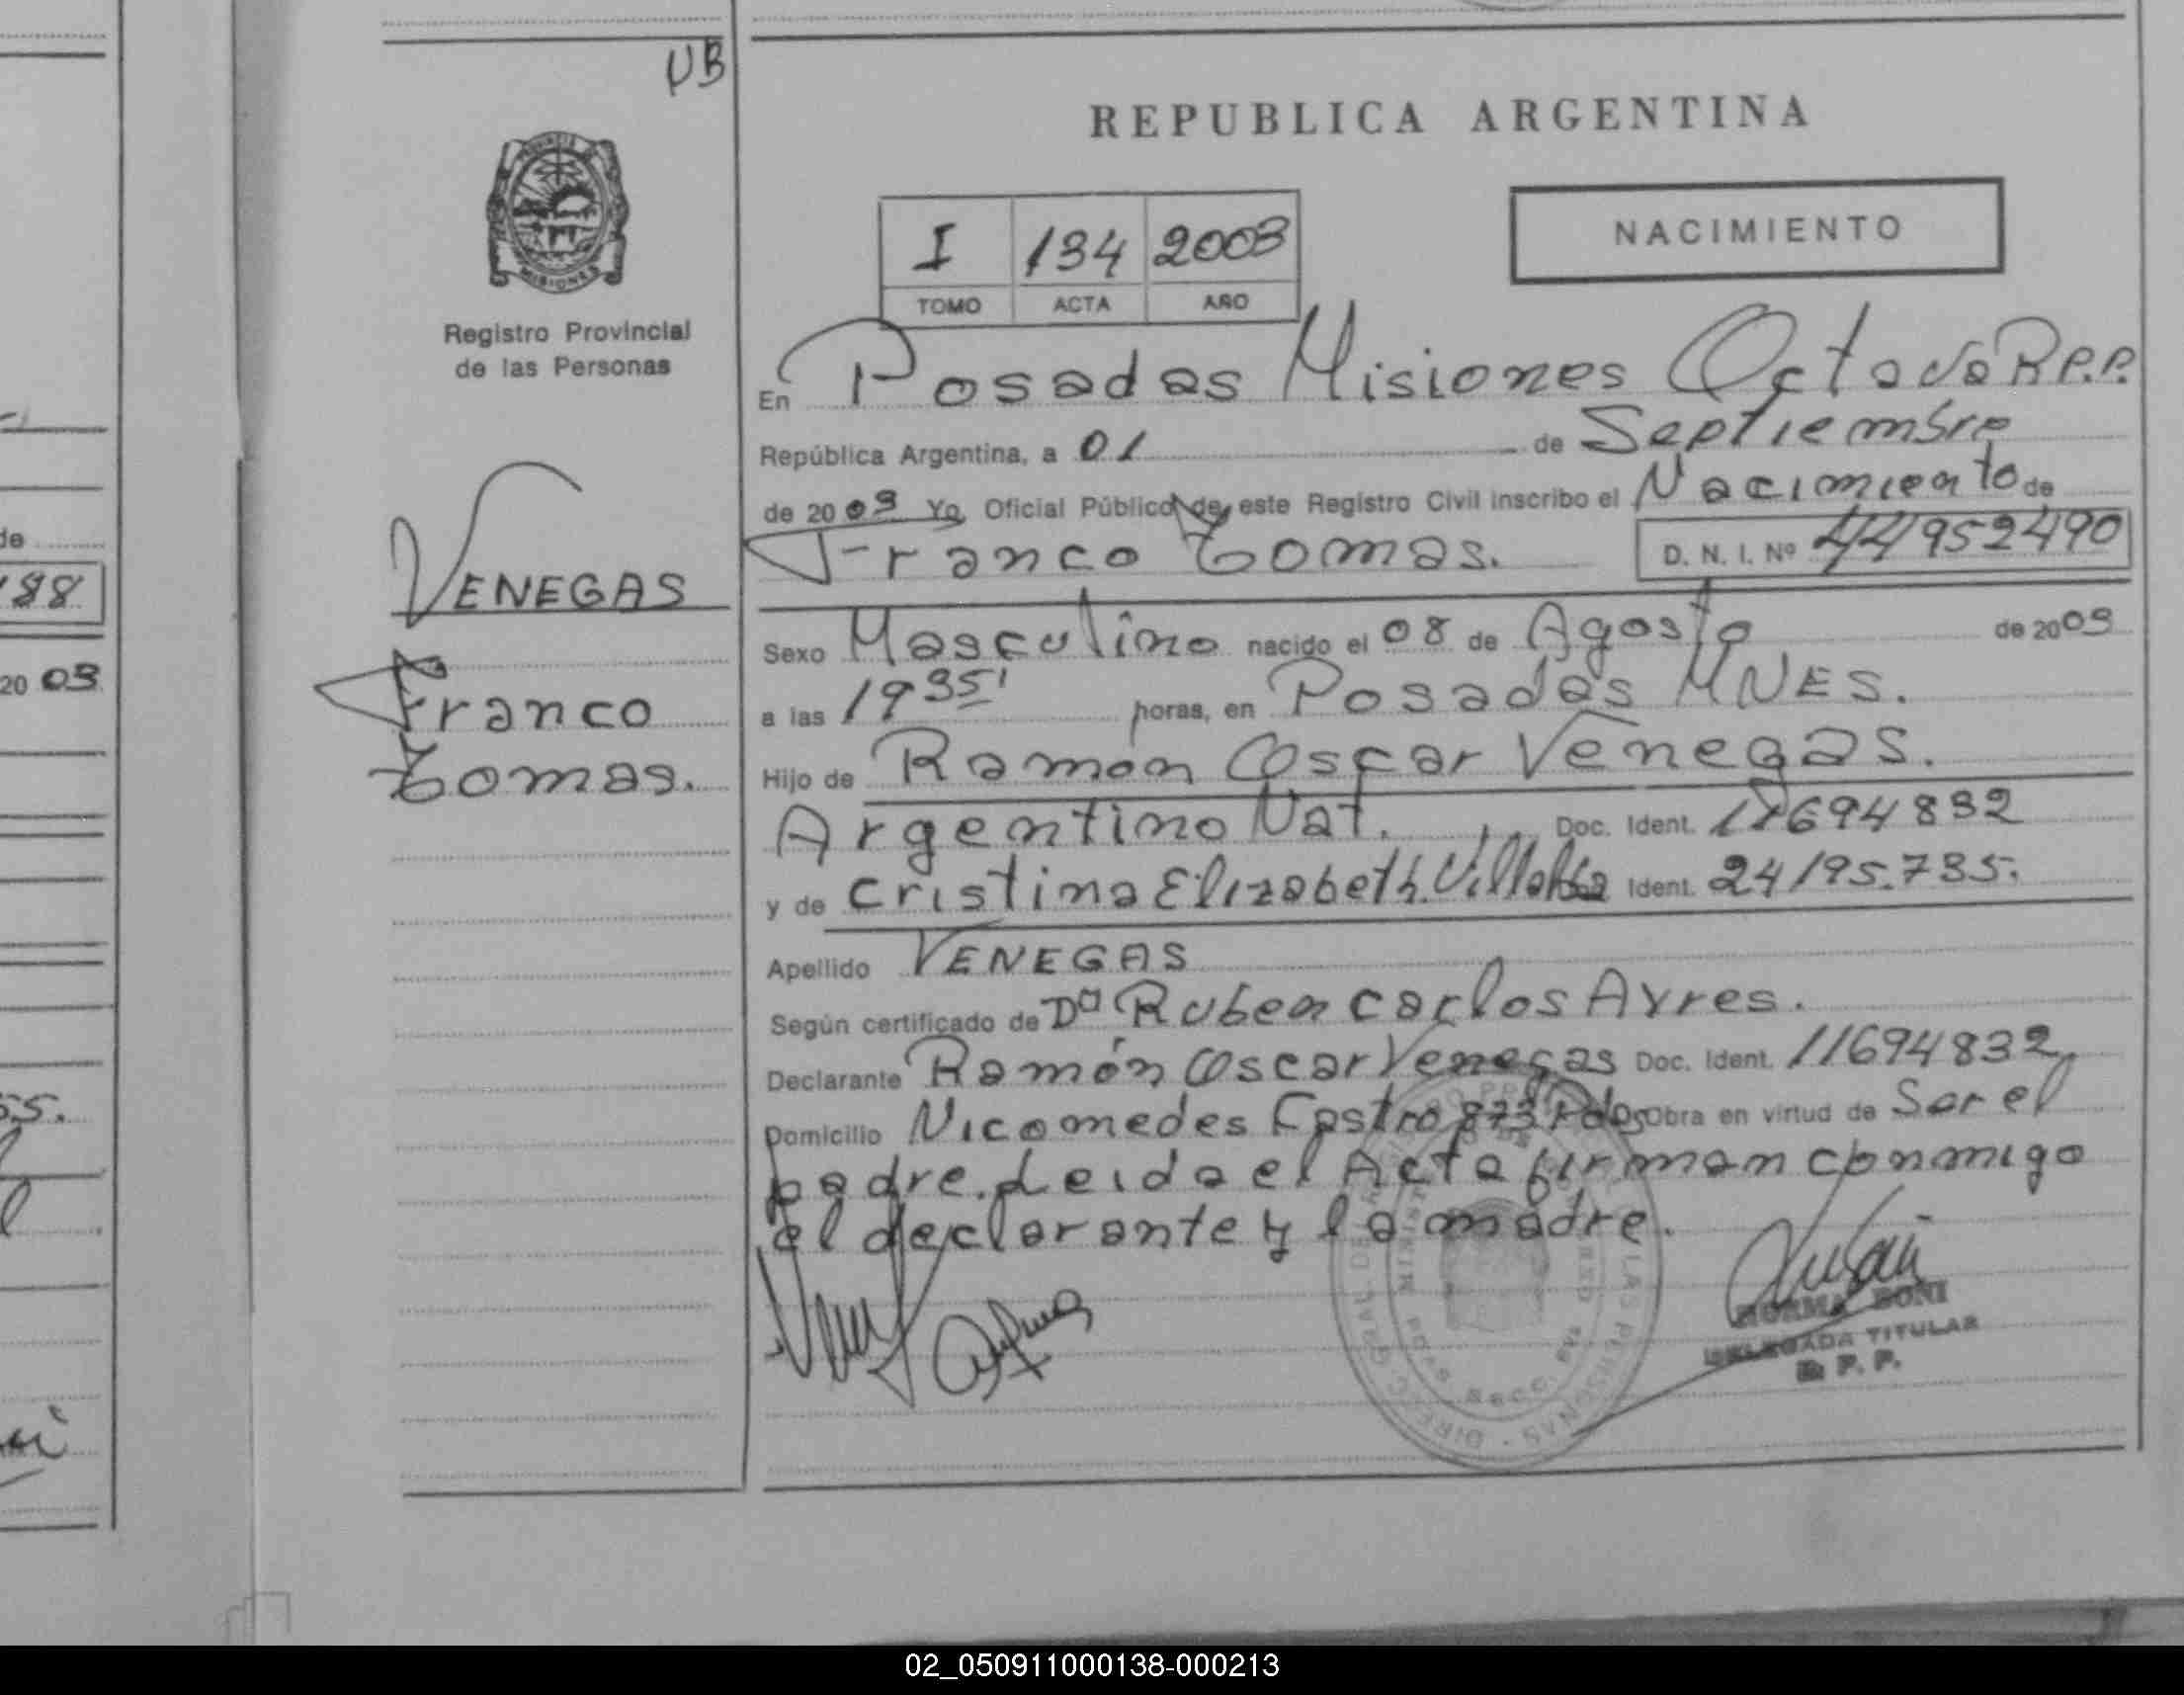 UB
REPUBLICA ARGENTINA
NACIMIENTO
I 134 2003
TOMO ACTA AÑO
MISIONES
Registro Provincial
de las Personas
En Posadas Misiones Octava R.P.P.
República Argentina, a 01 de Septiembre
de 2003 Yo, Oficial Público de este Registro Civil inscribo el Nacimiento de
Franco Tomas. D. N. I. Nº 44952490
VENEGAS
Franco
Tomas.
Sexo Masculino nacido el 08 de Agosto de 2003
a las 19 35' horas, en Posadas MNES.
Hijo de Ramón Oscar Venegas.
Argentino Nat. Doc. Ident. 11694832
y de Cristina Elizabeth Villalba Ident. 24195.735.
Apellido VENEGAS
Según certificado de Dª Ruben Carlos Ayres.
Declarante Ramón Oscar Venegas Doc. Ident. 11694832
Domicilio Nicomedes Castro 873 Pdas Obra en virtud de Ser el
padre. Leida el Acta firman conmigo
el declarante y la madre.
NORMA BONI
DELEGADA TITULAR
R. P. P.
de
188
20 03
55.
02_050911000138-000213